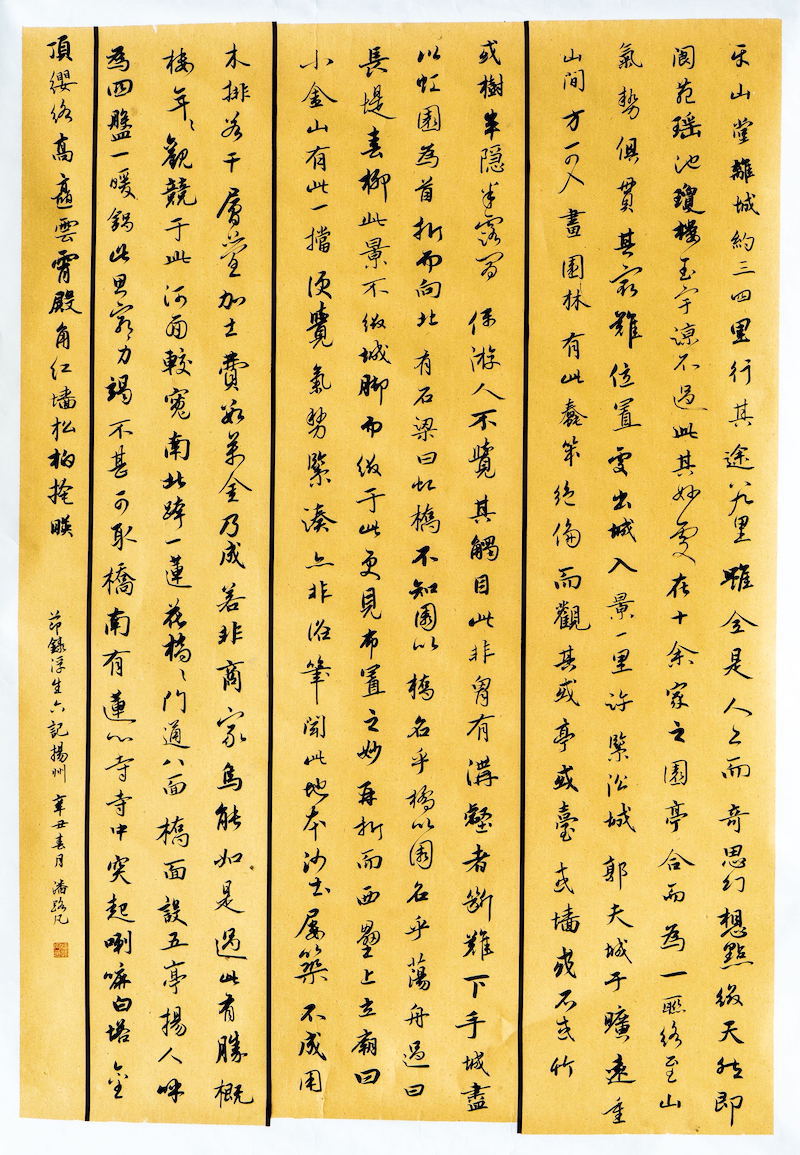 平山堂離城約三四里行其途八九里雖全是人工而奇思幻想點綴天然即
閬苑瑶池瓊樓玉宇諒不過此其妙處在十余家之園亭合而為一聯絡至山
氣勢俱貫其最難位置處出城入景一里許緊沿城郭夫城于曠遠重
山間方可入畫園林有此蠢笨絕倫而觀其或亭或臺或墻或石或竹
或樹半隱半露間使游人不覺其觸目此非胸有溝壑者斷難下手城盡
以虹園為首折而向北有石梁曰虹橋不知園以橋名乎橋以園名乎蕩舟過曰
長堤春柳此景不綴城脚而綴于此更見布置之妙再折而西壘土立廟曰
小金山有此一擋便覺氣勢緊湊亦非俗筆聞此地本沙土屢築不成用
木排若干層疊加土費數萬金乃成若非商家烏能如是過此有勝概
樓年、觀競于此河面較寬南北跨一蓮花橋、門通八面橋面設五亭揚人呼
為四盤一暖鍋此思窮力竭不甚可取橋南有蓮心寺寺中突起喇嘛白塔金
頂纓絡高矗雲霄殿角紅墻松柏掩映
節錄浮生六記揚州 辛丑春月 潘路凡